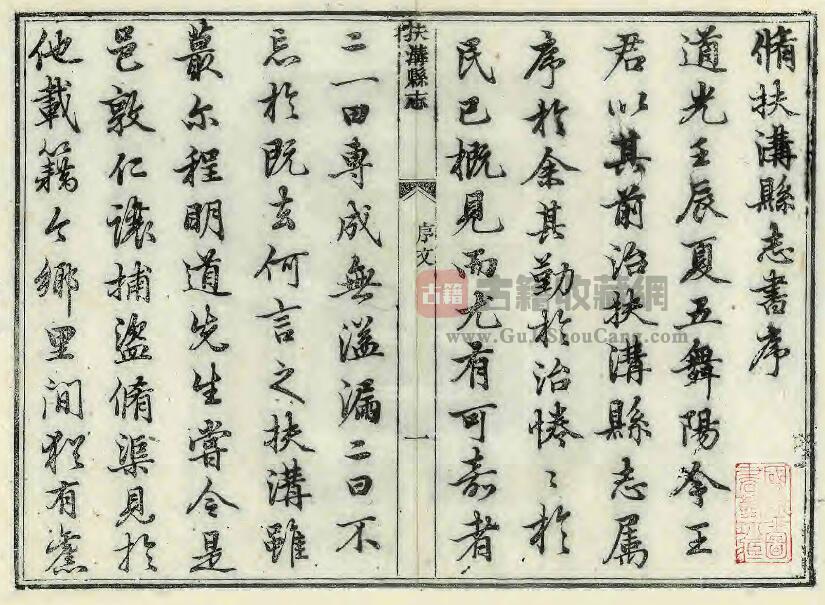 脩扶溝縣志書序
道光壬辰夏五舞陽令王
君以其前治扶溝縣志属
序於余其勤於治惓〻於
民已概見而尤有可嘉者
扶溝縣志
序文
一
二一曰専成無溢漏二曰不
忘於既去何言之扶溝雖
蕞尔程明道先生嘗令是
邑敦仁讓捕盜脩渠見於
他載籍今鄉里间猶有
古籍
古籍收藏網
www.GuJiShouCang.com